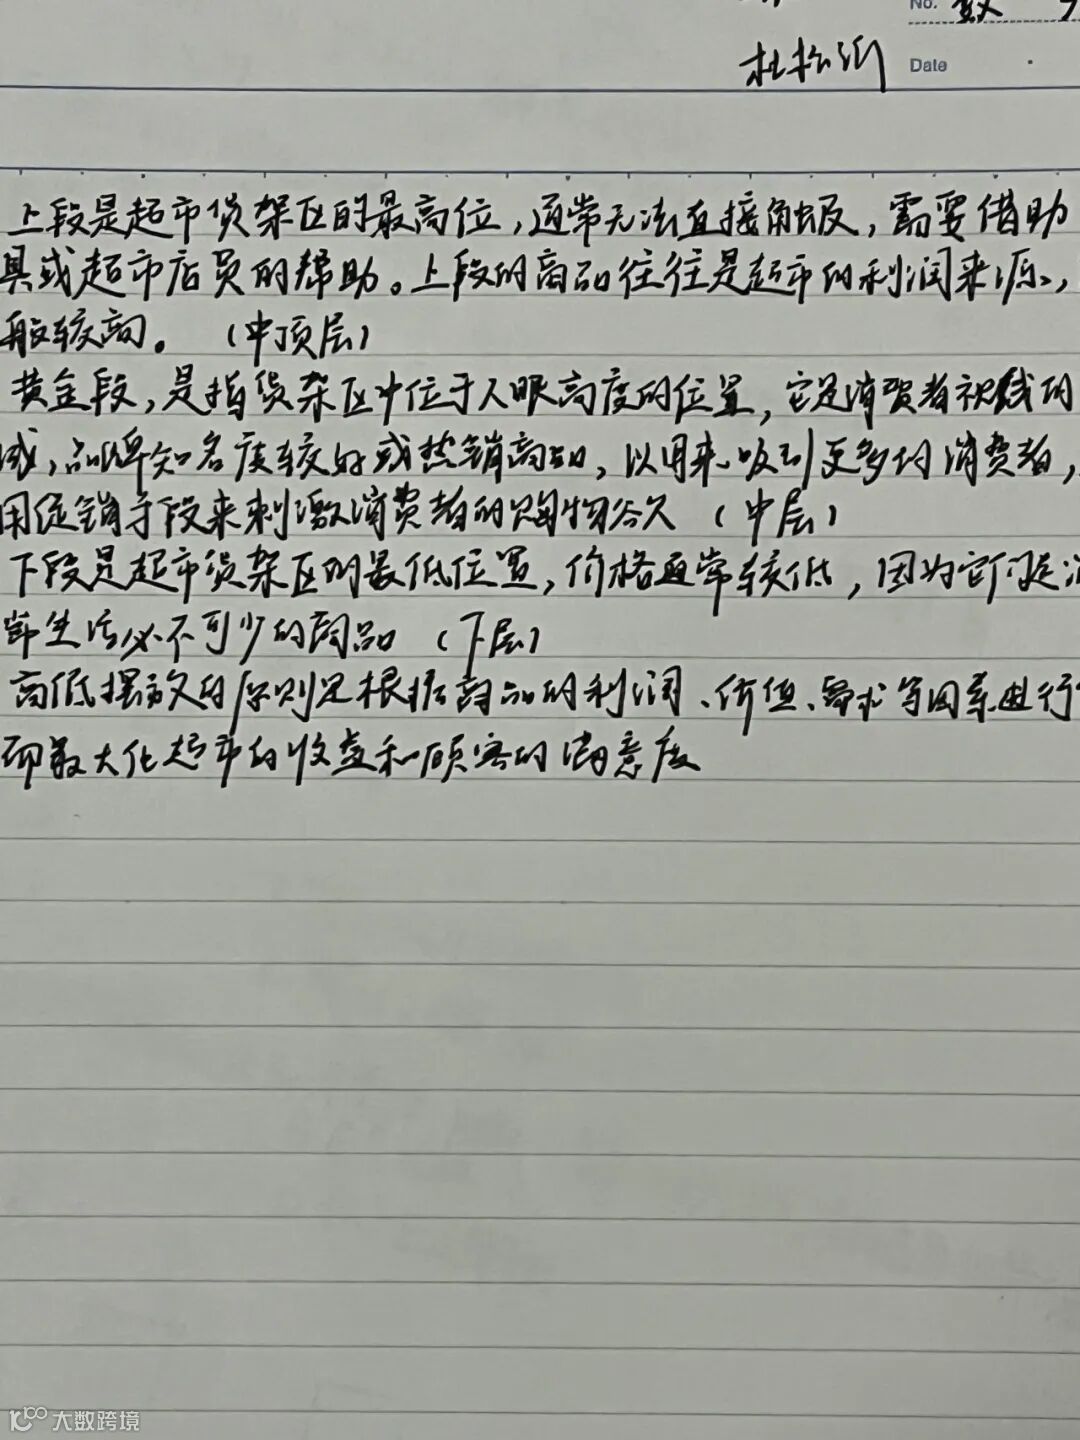 No. 数
杜松沂 Date
上段是超市货架区的最高位，通常无法直接触及，需要借助
具或超市店员的帮助。上段的商品往往是超市的利润来源，
般较高。（中顶层）
黄金段，是指货架区中位于人眼高度的位置，它是消费者视线的
域，品牌知名度较好或热销商品，以用来吸引更多的消费者，
用促销手段来刺激消费者的购物谷欠（中层）
下段是超市货架区的最低位置，价格通常较低，因为它们是
常生活必不可少的商品（下层）
高低摆放的原则是根据商品的利润、价值、需求等因素进行
而最大化超市的收益和顾客的满意度
大数跨境